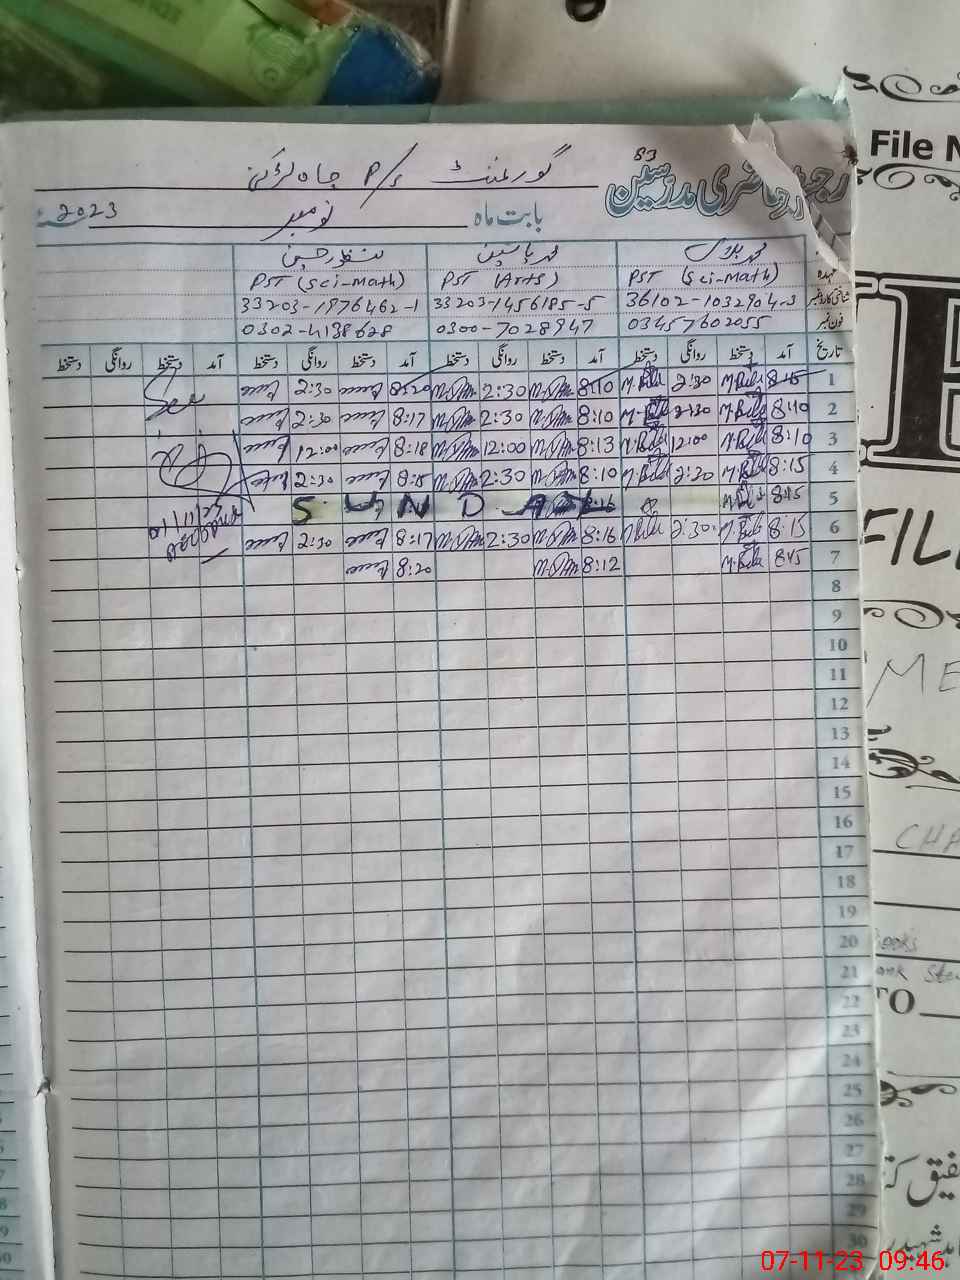 83
رجسٹر حاضری مدرسین
گورنمنٹ P/S چاہ
بابت ماہ نومبر 2023
محمد بلال محمد یاسین منظور حسین
عہدہ PST (Sci-Math) PST (Arts) PST (Sci-Math)
شناختی کارڈ نمبر 36102-1032904-3 33203-1456185-5 33203-1976462-1
فون نمبر 03457602055 0300-7028947 0302-4198628
تاریخ آمد دستخط روانگی دستخط آمد دستخط روانگی دستخط آمد دستخط روانگی دستخط آمد دستخط روانگی دستخط
1 8:15 M.Bilal 2:30 M.Bilal 8:10 2:30 8:20 2:30
2 8:10 M.Bilal 2:30 M.Bilal 8:10 2:30 8:17 2:30
3 8:10 M.Bilal 12:00 M.Bilal 8:13 12:00 8:18 12:00
4 8:15 M.Bilal 2:30 M.Bilal 8:10 2:30 8:15 2:30
5 8:15 8:16 SUNDAY
6 8:15 M.Bilal 2:30 M.Bilal 8:16 2:30 8:17 2:30
7 8:15 M.Bilal 8:12 8:20
8
9
10
11
12
13
14
15
16
17
18
19
20
21
22
23
24
25
26
27
28
29
30
See
File N
FIL
ME
CHA
Books
TO
07-11-23 09:46